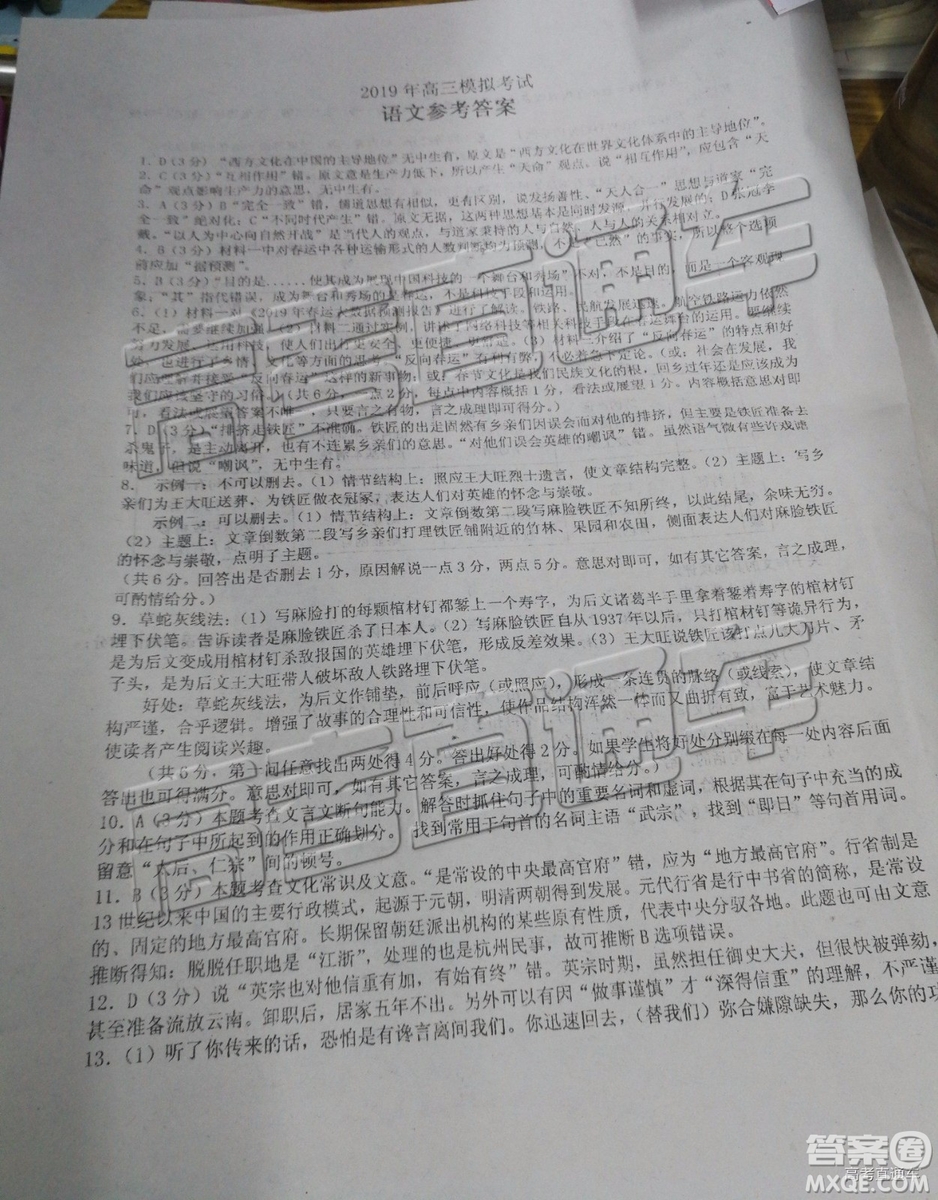 2019年高三模拟考试
语文参考答案
1．D(3分)“西方文化在中国的主导地位”无中生有，原文是“西方文化在世界文化体系中的主导地位”。
2．C(3分)“互相作用”错。原文意是生产力低下，所以产生“天命”观点。说“相互作用”，应包含“天
命”观点影响生产力的意思，无中生有．
3．A(3分)B“完全一致”错，儒道思想有相似，更有区别，说发扬善性。“天人合一”思想与道家“完
全一致”绝对化；C“不同时代产生”错。原文无据，这两种思想基本是同时发源，并行发展的；D张冠李
戴。“以人为中心向自然开战”是当代人的观点，与道家对立，与人与人的关系相对立。
4．B(3分)材料一中对春运中各种运输形式的人数判断均为预测，不是“已然”的事实，所以这个选项
前应加“据预测”。
5．B(3分)“目的是......使其成为展现中国科技的一个舞台和秀场”不对，不是目的，而是一个客观现
象；“其”指代错误，成为舞台和秀场的是春运，不是科技手段和运用。
6．(1)材料一对《2019年春运大数据预测报告》进行了解读。铁路、民航发展迅速，航空铁路运力依然
不足，需要继续加强。(2)材料二通过实例，讲述了网络科技等相关科技手段在春运舞台的运用。要继续
努力发展，运用科技，使人们出行更安全，更便捷，更舒适。(3)材料三介绍了“反向春运”的特点和好
处，也进行了乡情、文化等方面的思考。“反向春运”有利有弊，不必着急下定论。(或：社会在发展，我
们应理解并接受“反向春运”这样的新事物；或，春节文化是我们民族文化的根，回乡过年还是应该成为
我们应该坚守的习俗。)(共6分，一点2分，每点中内容概括1分，看法或展望1分。内容概括意对即
可，看法或展望答案不唯一，只要言之有物，言之成理即可得分。)
7．D(3分)“排挤走铁匠”不准确。铁匠的出走固然有乡亲们因误会而对他的排挤，但主要是铁匠准备去
杀鬼子，是主动离开，也有不连累乡亲们的意思。“对他们误会英雄的嘲讽”错。虽然语气微有些许戏谑
味道，但说“嘲讽”，无中生有。
8． 示例一：不可以删去。(1)情节结构上：照应王大旺烈士遗言，使文章结构完整。(2)主题上：写乡
亲们为王大旺送葬，为铁匠做衣冠冢，表达人们对英雄的怀念与崇敬。
示例二：可以删去。(1)情节结构上：文章倒数第二段写麻脸铁匠不知所终，以此结尾，余味无穷。
(2)主题上：文章倒数第二段写乡亲们打理铁匠铺附近的竹林、果园和农田，侧面表达人们对麻脸铁匠
的怀念与崇敬，点明了主题。
(共6分。回答出是否删去1分，原因解说一点3分，两点5分。意思对即可，如有其它答案，言之成理，
可酌情给分。)
9．草蛇灰线法：(1)写麻脸打的每颗棺材钉都錾上一个寿字，为后文诸葛半手里拿着錾着寿字的棺材钉
埋下伏笔。告诉读者是麻脸铁匠杀了日本人。(2)写麻脸铁匠自从1937年以后，只打棺材钉等诡异行为，
是为后文变成用棺材钉杀敌报国的英雄埋下伏笔，形成反差效果。(3)王大旺说铁匠该打点儿大刀片、矛
子头，是为后文王大旺带人破坏敌人铁路埋下伏笔。
好处：草蛇灰线法，为后文作铺垫，前后呼应(或照应)，形成一条连贯的脉络(或线索)，使文章结
构严谨，合乎逻辑。增强了故事的合理性和可信性，使作品结构浑然一体而又曲折有致，富于艺术魅力。
使读者产生阅读兴趣。
(共6分，第一问任意找出两处得4分。答出好处得2分。如果学生将好处分别缀在每一处内容后面
答出也可得满分。意思对即可，如有其它答案，言之成理，可酌情给分。)
10．A(3分)本题考查文言文断句能力。解答时抓住句子中的重要名词和虚词，根据其在句子中充当的成
分和在句子中所起到的作用正确划分。找到常用于句首的名词主语“武宗”，找到“即日”等句首用词。
留意“太后、仁宗”间的顿号。
11．B(3分)本题考查文化常识及文意。“是常设的中央最高官府”错，应为“地方最高官府”。行省制是
13世纪以来中国的主要行政模式，起源于元朝，明清两朝得到发展。元代行省是行中书省的简称，是常设
的、固定的地方最高官府。长期保留朝廷派出机构的某些原有性质，代表中央分驭各地。此题也可由文意
推断得知：脱脱任职地是“江浙”，处理的也是杭州民事，故可推断B选项错误。
12．D(3分)说“英宗也对他信重有加，有始有终”错。英宗时期，虽然担任御史大夫，但很快被弹劾，
甚至准备流放云南。卸职后，居家五年不出。另外可以有因“做事谨慎”才“深得信重”的理解，不严谨
13．(1)听了你传来的话，恐怕是有谗言离间我们。你迅速回去，(替我们)弥合嫌隙缺失，那么你的功
高考直通车
高考直通车
答案圈
高考直通车
MXQE.COM